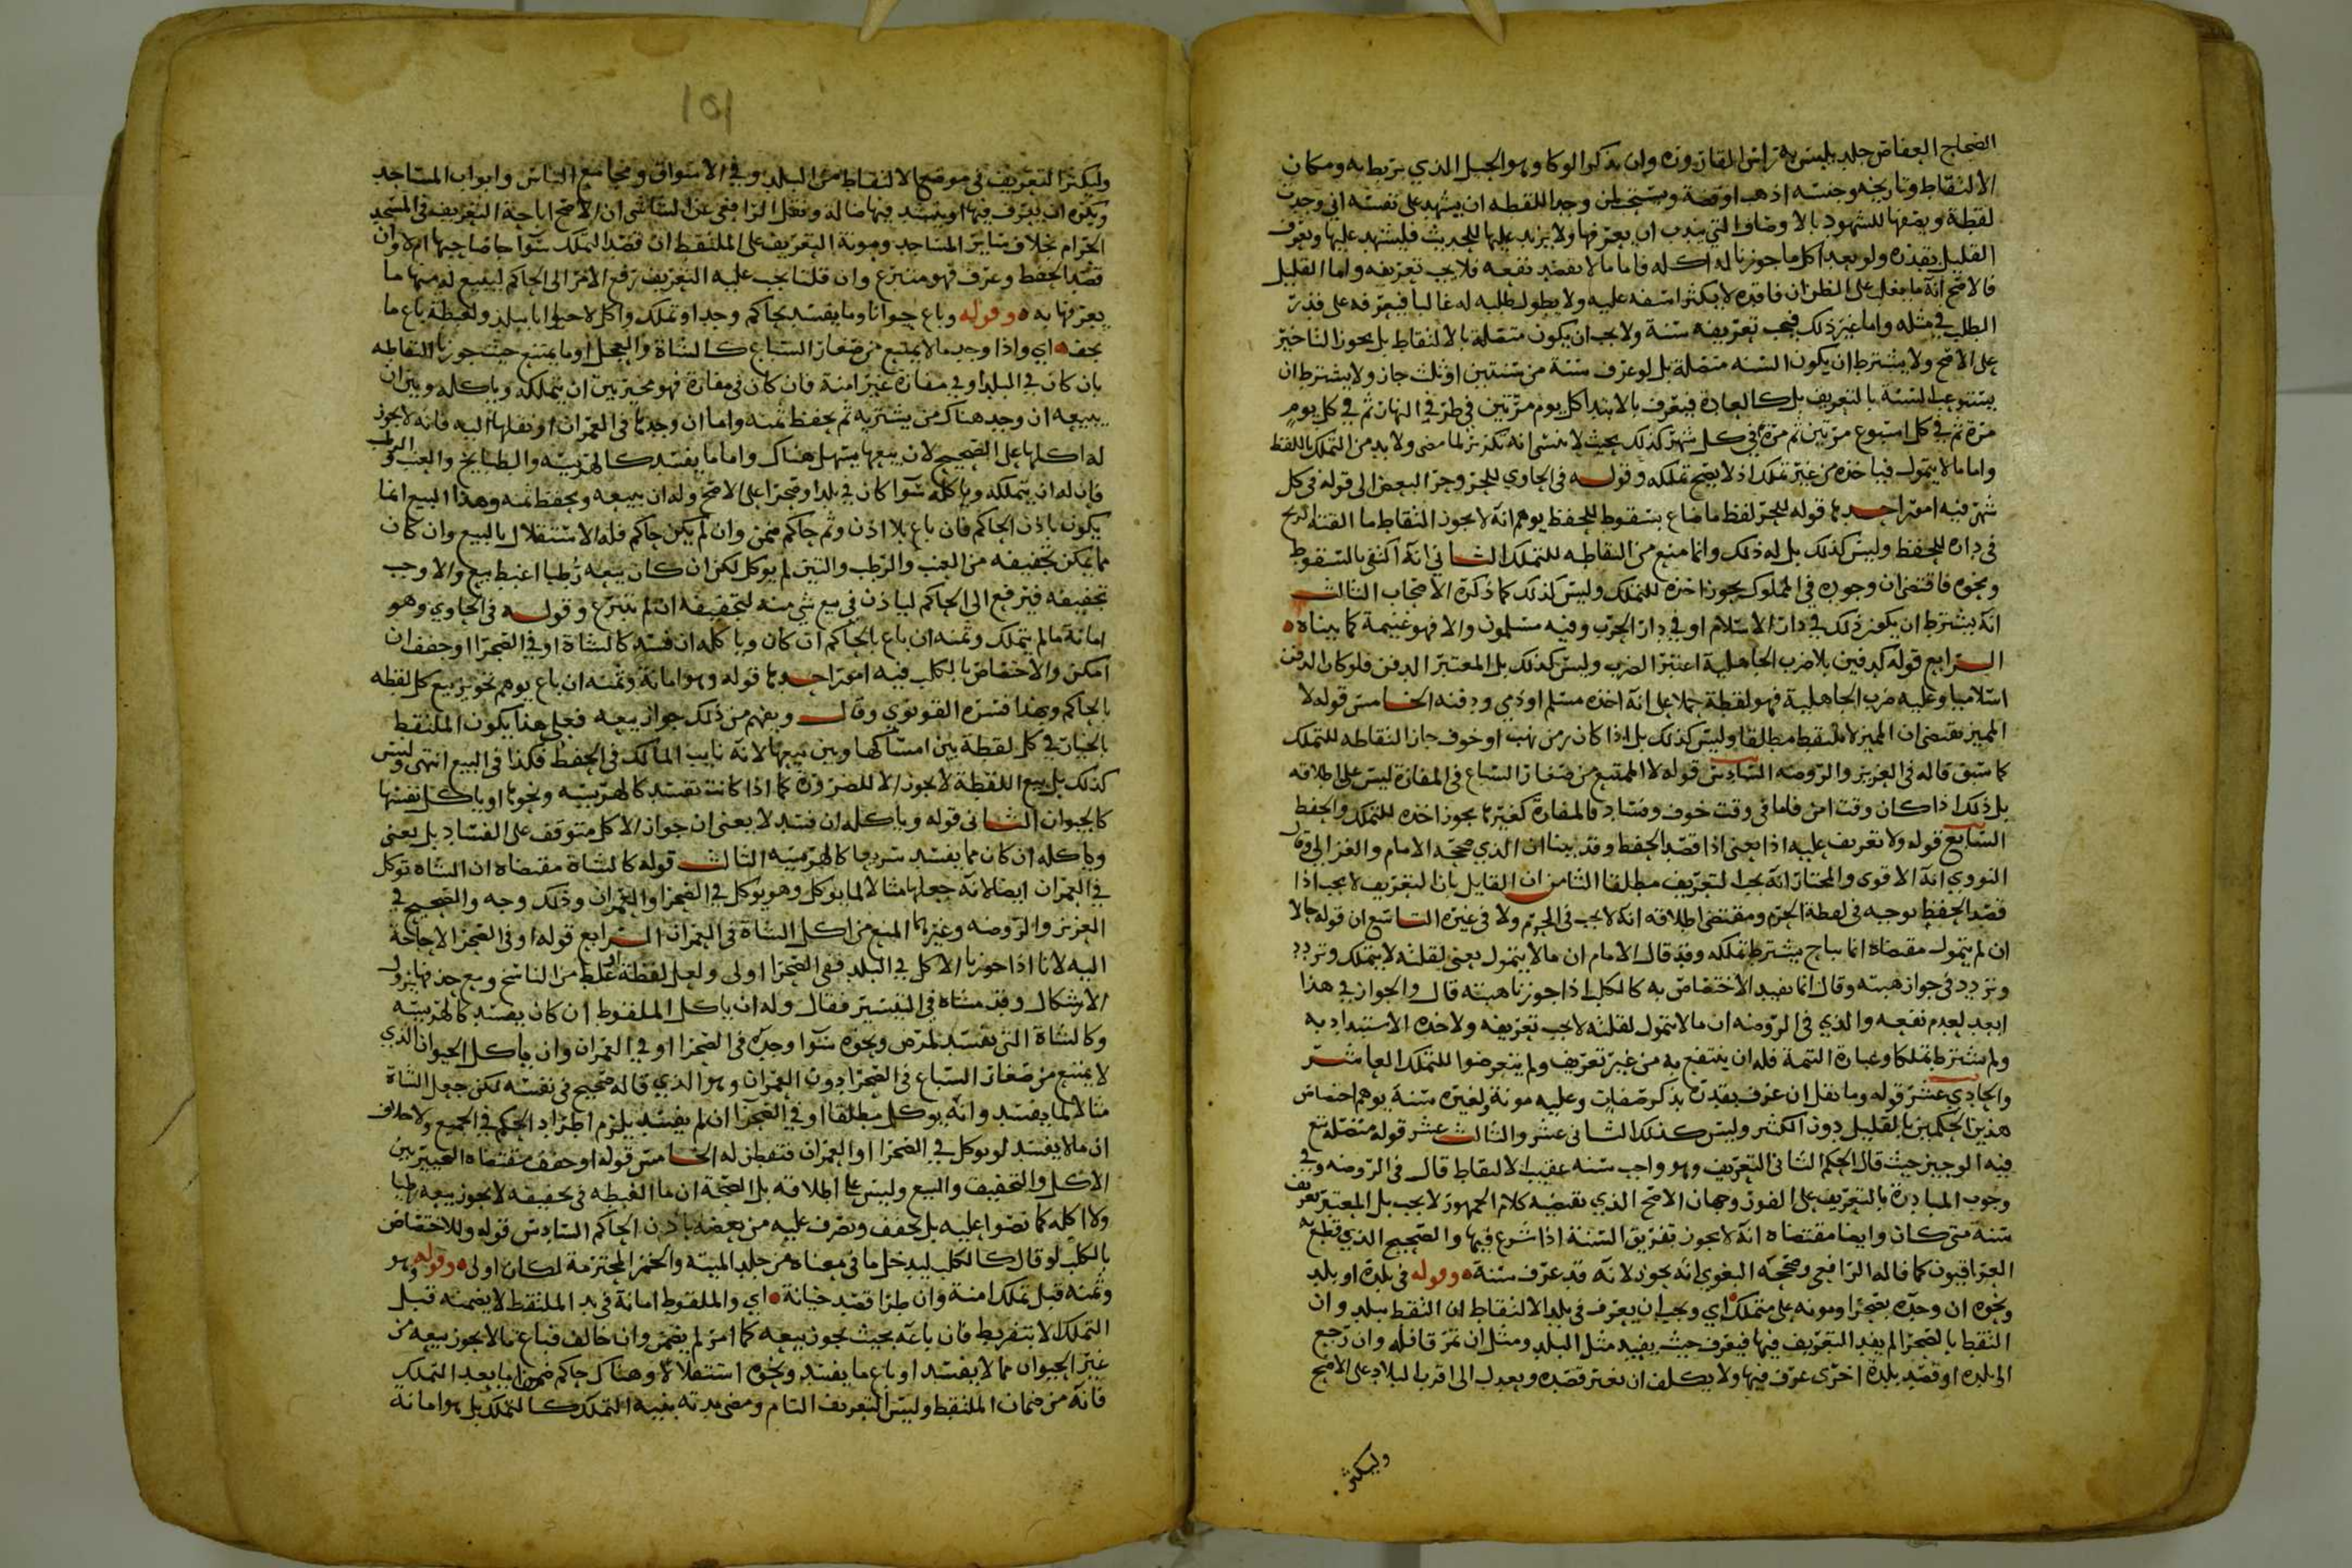 الصحاح العفاص جلد يلبس به راس القارورة وان يذكر الوكا وهو الحبل الذي يربط به ومكان
الالتقاط وتاريخه وجنسه اذهب او فضة ويستحب لمن وجد اللقطه ان يشهد على نفسه اني وجدت
لقطة ويصفها للشهود بالاوصاف التي يندب ان يعرفها ولا يزيد عليها للحديث فليشهد عليها ويعرف
القليل بقدره ولو بعد اكل ما جوزنا له اكله فاما ما لا يقصد نفعه فلا يجب تعريفه واما القليل
فالاصح انه ما يغلب على الظن ان فاقده لا يكثر اسفه عليه ولا يطول طلبه له غالبا فيعرفه على قدر
الطلب في مثله واما غير ذلك فيجب تعريفه سنة ولا يجب ان يكون متصلة بالالتقاط بل يجوز التاخير
على الاصح ولا يشترط ان يكون السنه متصلة بل لو عرف سنة من سنتين او ثلث جاز ولا يشترط ان
يستوعب السنة بالتعريف بل كالعادة فيعرف بالابتدا كل يوم مرتين في طرفي النهار ثم في كل يوم
مرة ثم في كل اسبوع مرتين ثم مرة في كل شهر كذلك بحيث لا ينسى انه تكرير لما مضى ولا بد من التملك باللفظ
واما ما لا يتمول فياخذه من غير تملك اذ لا يصح تملكه وقوله في الحاوي للحر وجر البعض الى قوله في كل
شهر فيه امور احدها قوله للحر لفظ ما ضاع بسقوط للحفظ يوهم انه لا يجوز التقاط ما القته الريح
في داره للحفظ وليس كذلك بل له ذلك وانما منع من التقاطه للتملك الثاني انه اكتفى بالسقوط
ونحوه فاقتضى ان وجوده في المملوك يجوز اخذه للتملك وليس كذلك كما ذكره الاصحاب الثالث
انه يشترط ان يكون ذلك في دار الاسلام او في دار الحرب وفيه مسلمون والا فهو غنيمة كما بيناه
الرابع قوله كدفين بلا ضرب الجاهلية اعتبر الضرب وليس كذلك بل المعتبر الدفن فلو كان الدفن
اسلاميا وعليه ضرب الجاهلية فهو لقطة حملا على انه اخذه مسلم او ذمي ودفنه الخامس قوله لا
المميز يقتضي ان المميز لا يلتقط مطلقا وليس كذلك بل اذا كان زمن نهب او خوف جاز التقاطه للتملك
كما سبق قاله في العزيز والروضه السادس قوله لا الممتنع من صغار السباع في المفازة ليس على اطلاقه
بل ذلك اذا كان وقت امن فاما في وقت خوف وفساد فالمفازة كغيرها يجوز اخذه للتملك والحفظ
السابع قوله ولا تعريف عليه اذا يعني اذا قصد الحفظ وقد بينا ان الذي صححه الامام والغزالي وقال
النووي انه الاقوى والمختار انه يجب التعريف مطلقا الثامن ان القايل بان التعريف لا يجب اذا
قصد الحفظ يوجبه في لقطة الحرم ومقتضى اطلاقه انه لا يجب في الحرم ولا في غيره التاسع ان قوله حالا
ان لم يتمول مقتضاه انما يباح يشترط تملكه وقد قال الامام ان ما لا يتمول يعني لقلته لا يتملك وتردد
وتردد في جواز هبته وقال انما يفيد الاختصاص به كالكلب اذا جوزنا هبته قال والجواز في هذا
ابعد لعدم نفعه والذي في الروضه ان ما لا يتمول لقلته لا يجب تعريفه ولاخذه الاستبداد به
ولم يشترط تملكا وعبارة التتمة فله ان ينتفع به من غير تعريف ولم يتعرضوا للتملك العاشر
والحادي عشر قوله وما نقل ان عرف بقدره بذكر صفات وعليه مونة ولغيره سنة يوهم اختصاص
هذين الحكمين بالقليل دون الكثير وليس كذلك الثاني عشر والثالث عشر قوله متصلة تبع
فيه الوجيز حيث قال الحكم الثاني التعريف وهو واجب سنه عقيب الالتقاط قال في الروضه وفي
وجوب المبادرة بالتعريف على الفور وجهان الاصح الذي يقتضيه كلام الجمهور لا يجب بل المعتبر تعريف
سنة متى كان وايضا مقتضاه انه لا يجوز تفريق السنة اذا شرع فيها والصحيح الذي قطع به
العراقيون كما قاله الرافعي وصححه البغوي انه يجوز لانه قد عرف سنة ه وقوله في بلدة او بلد
ونحوه ان وجده بصحرا ومونه على متملك اي ويجب ان يعرف في بلد الالتقاط ان التقط ببلد وان
التقط بالصحرا لم يفد التعريف فيها فيعرف حيث يفيد مثل البلد ومثل ان تمر قافلة وان رجع
الى بلده او قصد بلدة اخرى عرف فيها ولا يكلف ان يغير قصده ويعدل الى اقرب البلاد على الاصح
وليكثر
١٥١
وليكثر التعريف في موضع الالتقاط من البلد وفي الاسواق ومجامع الناس وابواب المساجد
ويكره ان يعرف فيها او ينشد فيها ضالة ونقل الرافعي عن الشاشي ان الاصح اباحة التعريف في المسجد
الحرام بخلاف ساير المساجد ومونة التعريف على الملتقط ان قصد التملك سوا جا صاحبها ام لا وان
قصد الحفظ وعرف فهو متبرع وان قلنا يجب عليه التعريف رفع الامر الى الحاكم ليبيع له منها ما
يعرفها به ه وقوله وباع حيوانا وما يفسد بحاكم وجد او تملك واكل لا حيوانا ببلد ولغبطة باع ما
يجف ه اي واذا وجد ما لا يمتنع من صغار السباع كالشاة والعجل او ما يمتنع حيث جوزنا التقاطه
بان كان في البلد او في مفازة غير امنة فان كان في مفازة فهو مخير بين ان يتملكه وياكله وبين ان
يبيعه ان وجد هناك من يشتريه ثم يحفظ ثمنه واما ان وجدها في العمران او نقلها اليه فانه لا يجوز
له اكلها على الصحيح لان بيعها يسهل هناك واما ما يفسد كالهريسه والطبايخ والعنب والرطب
فان له ان يتملكه وياكله سوا كان في بلد او صحرا على الاصح وله ان يبيعه ويحفظ ثمنه وهذا البيع انما
يكون باذن الحاكم فان باع بلا اذن وثم حاكم ضمن وان لم يكن حاكم فله الاستقلال بالبيع وان كان
مما يمكن تجفيفه من العنب والرطب والتين لم يوكل لكن ان كان بيعه رطبا اغبط بيع والا وجب
تجفيفه فيرفع الى الحاكم لياذن في بيع شي منه لتجفيفه ان لم يتبرع وقوله في الحاوي وهو
امانة ما لم يتملك وثمنه ان باع بالحاكم ان كان وياكله ان فسد كالشاة او في الصحرا او جفف ان
امكن والاختصاص بالكلب فيه امور احدها قوله وهو امانة وثمنه ان باع يوهم تجويز بيع كل لقطه
بالحاكم وبهذا فسره القونوي وقال ويفهم من ذلك جواز بيعه فعلى هذا يكون الملتقط
بالخيار في كل لقطة بين امساكها وبين بيعها لانه نايب المالك في الحفظ فكذا في البيع انتهى وليس
كذلك بل بيع اللقطة لا يجوز الا للضرورة كما اذا كانت تفسد كالهريسه ونحوها او ياكل نفسها
كالحيوان الثاني قوله وياكله ان فسد لا يعني ان جواز الاكل متوقف على الفساد بل يعني
وياكله ان كان مما يفسد سريعا كالهريسه الثالث قوله كالشاة مقتضاه ان الشاة توكل
في العمران ايضا لانه جعلها مثالا لما يوكل وهو يوكل في الصحرا والعمران وذلك وجه والصحيح في
العزيز والروضه وغيرهما المنع من اكل الشاة في العمران الرابع قوله او في الصحرا لا حاجة
اليه لانا اذا جوزنا الاكل في البلد ففي الصحرا اولى ولعل لفظة او غلط من الناسخ ومع حذفها يزول
الاشكال وقد مشاه في التفسير فقال وله ان ياكل الملقوط ان كان يفسد كالهريسه
وكالشاة التي تفسد لمرض ونحوه سوا وجده في الصحرا او في العمران وان ياكل الحيوان الذي
لا يمتنع من صغار السباع في الصحرا دون العمران وهو الذي قاله صحيح في نفسه لكن جعل الشاة
مثالا لما يفسد وانه يوكل مطلقا او في الصحرا ان لم يفسد يلزم اطراد الحكم في الجميع ولا خلاف
ان ما لا يفسد لو يوكل في الصحرا او العمران فتفطن له الخامس قوله او جفف مقتضاه التخيير بين
الاكل والتجفيف والبيع وليس على اطلاقه بل الصحة ان ما الغبطه في تجفيفه لا يجوز بيعه رطبا
ولا اكله كما نصوا عليه بل يجفف ويصرف عليه من بعضه باذن الحاكم السادس قوله وللاختصاص
بالكلب لو قال كالكلب ليدخل ما في معناه من جلد الميتة والخمر المحترمة لكان اولى ه وقوله وهو
وثمنه قبل تملك امنة وان طرا قصد خيانة ه اي والملقوط امانة في يد الملتقط لا يضمنه قبل
التملك الا بتفريط فان باعه بحيث يجوز بيعه كما امر لم يضمن وان خالف فباع ما لا يجوز بيعه من
غير الحيوان مما لا يفسد او باع ما يفسد ونحوه استقلالا وهناك حاكم ضمن اما بعد التملك
فانه من ضمان الملتقط وليس التعريف التام ومضي مدته بغية التملك كالتملك بل هو امانة